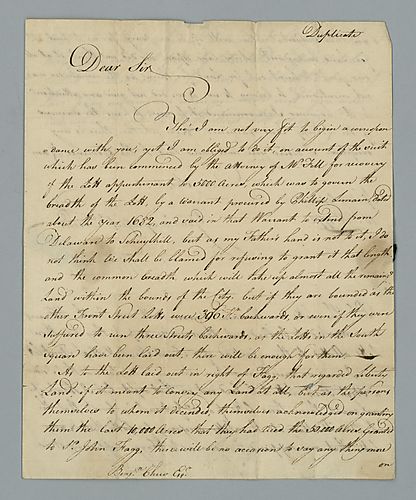 Duplicate
Dear Sir
Tho' I am not very fit to begin a correspon
dance with you, yet I am obliged to do it, on account of the suit
which has been commenced by the Attorney of Mr
for recovery
of the Lott appurtenant to 5000 Acres, which was to govern the
breadth of the Lott, by a Warrant procured by Philip
dated
about the year 1682, and said in that Warrant to extend from
Delaware to Schuylkill, but as my Fathers hand is not to it, I do
not think We shall be blamed for refusing to grant it that length
and the common breadth which will take up almost all the remaining
Land within the bounds of the City, but if they are bounded as the
other Front Street Lotts were 396 Ft. backwards, or even if they were
supposed to run three Streets backwards, as the Lotts in the South
Square have been laid out, there will be enough for them.
As to the Lott laid out in right of Fagg, that regarded Liberty
Land if it meant to convey any Land at all, but as the persons
themselves to whom it descended, themselves acknowledged on granting
them the last 10,000 Acres that they had
the
Acres Granted
to Sr. John Fagg, there will be no occasion to say any thing more
on
Benjn. Chew Esqr.